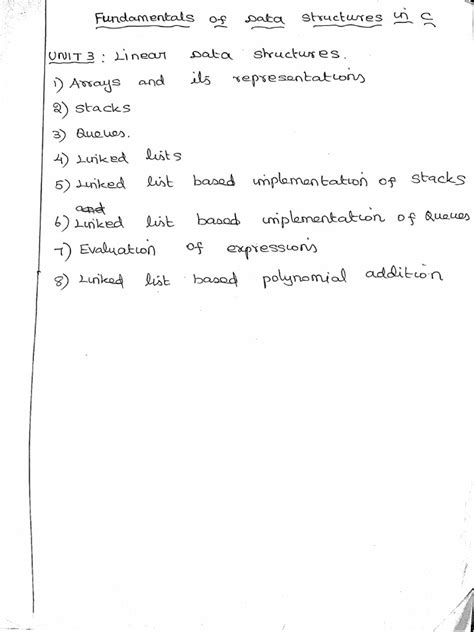 Fundamentals of Data Structures in C
UNIT 3 : Linear Data structures.
1) Arrays and its representations
2) Stacks
3) Queues.
4) Linked lists
5) Linked list based implementation of stacks
and
6) Linked list based implementation of Queues
7) Evaluation of expressions
8) Linked list based polynomial addition